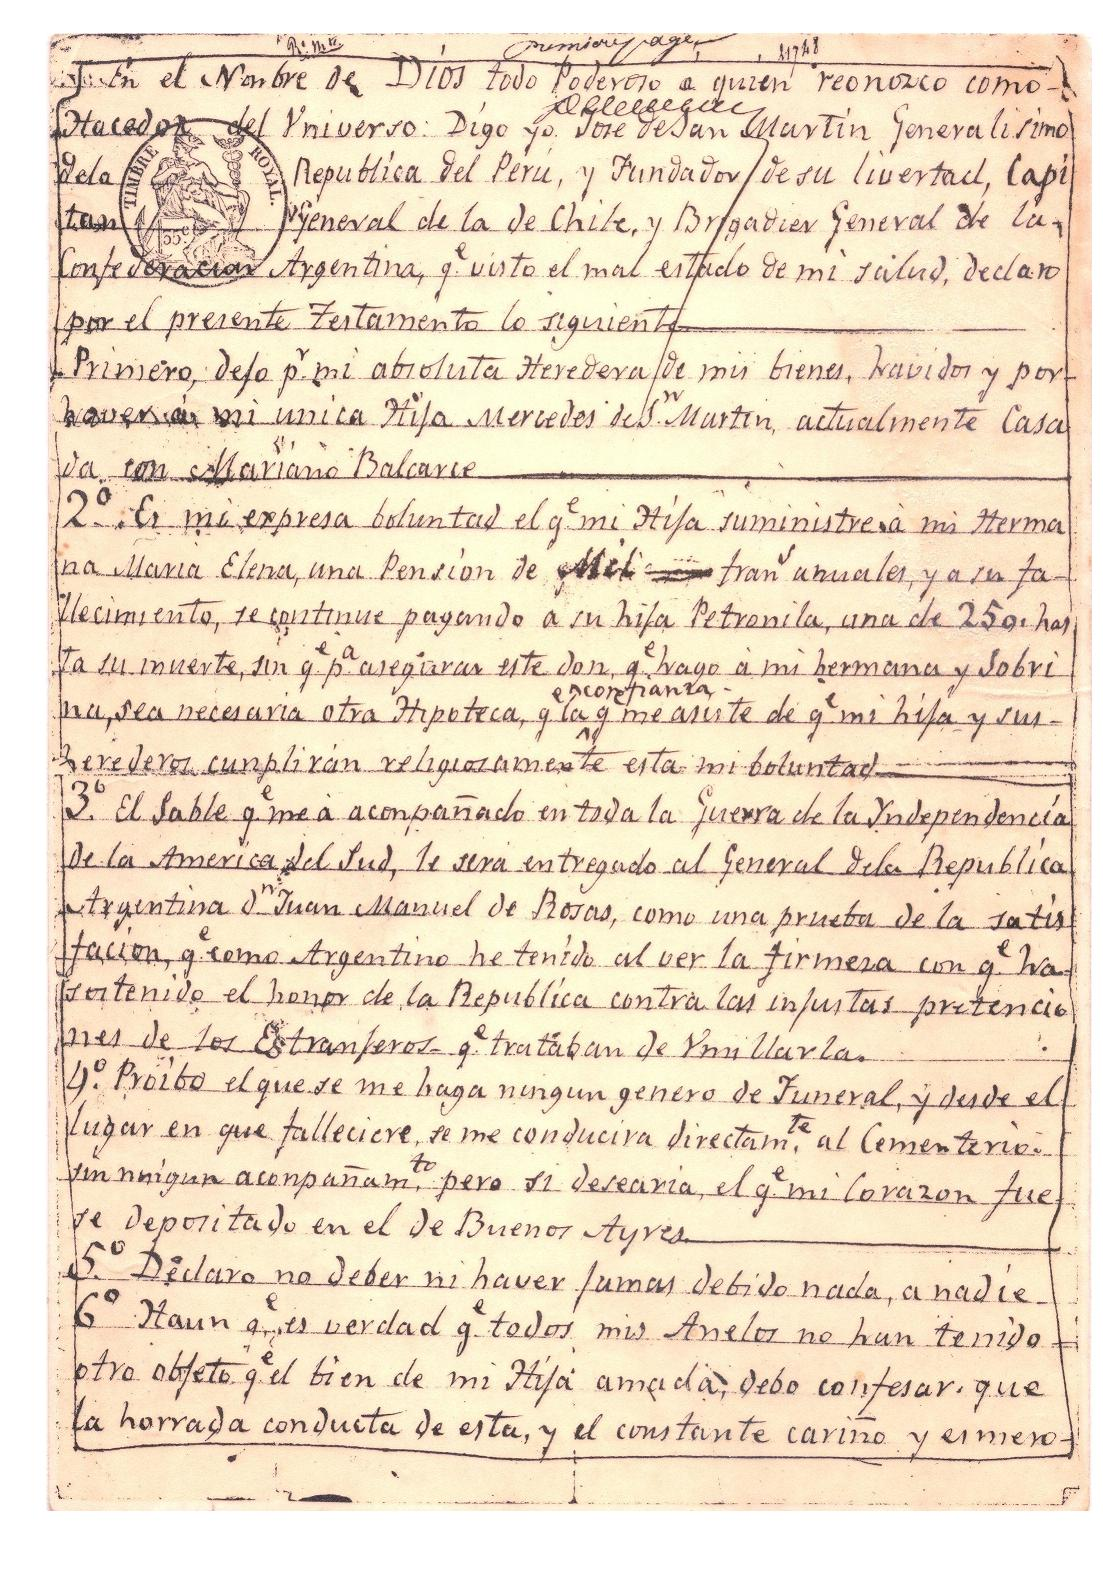 premiere page,
En el Nonbre de Dios todo Poderoso a quien reonozco como
Hacedor del Vniverso: Digo yo Jose de San Martin Generalisimo
TIMBRE ROYAL.
dela Republica del Perú, y Fundador de su livertad, Capi
tan General de la de Chile, y Brigadier General de la
Confederacion Argentina, qe. visto el mal estado de mi salud, declaro
por el presente Testamento lo siguiente
Primero, dejo pr. mi absoluta Heredera de mis bienes, havidos y por
haver á mi unica Hija Mercedes de Sn. Martin, actualmente Casa
da con Mariano Balcarce
2º. Es mi expresa boluntad el qe. mi Hija suministre á mi Herma
na Maria Elena, una Pension de Mil frans. anuales, y a su fa-
llecimiento, se continue pagando a su hija Petronila, una de 250. has
ta su muerte, sin qe. pa. asegurar este don, qe. hago á mi hermana y Sobri
na, sea necesaria otra Hipoteca, q la confianza qe. me asiste de qe. mi hija y sus
herederos cunplirán religiosamente esta mi boluntad
3º. El Sable qe. me á aconpañado en toda la Guerra de la Yndependencia
de la America del Sud, le será entregado al General dela Republica
Argentina Dn. Juan Manuel de Rosas, como una prueba de la satis
facion, qe. como Argentino he tenido al ver la firmeza con qe. ha
sostenido el honor de la Republica contra las injustas pretencio
nes de los Estranjeros qe. trataban de Vmillarla.
4º. Proibo el que se me haga ningun genero de Funeral, y desde el
lugar en que falleciere, se me conducira directamte. al Cementerio
sin ningun aconpañamto. pero si desearia, el qe. mi Corazon fue
se depositado en el de Buenos Ayres.
5.º Declaro no deber ni haver jamas debido nada, a nadie
6º Haun qe. es verdad qe. todos mis Anelos no han tenido
otro objeto qe. el bien de mi Hija amada, debo confesar. que
la horrada conducta de esta, y el constante cariño y esmero